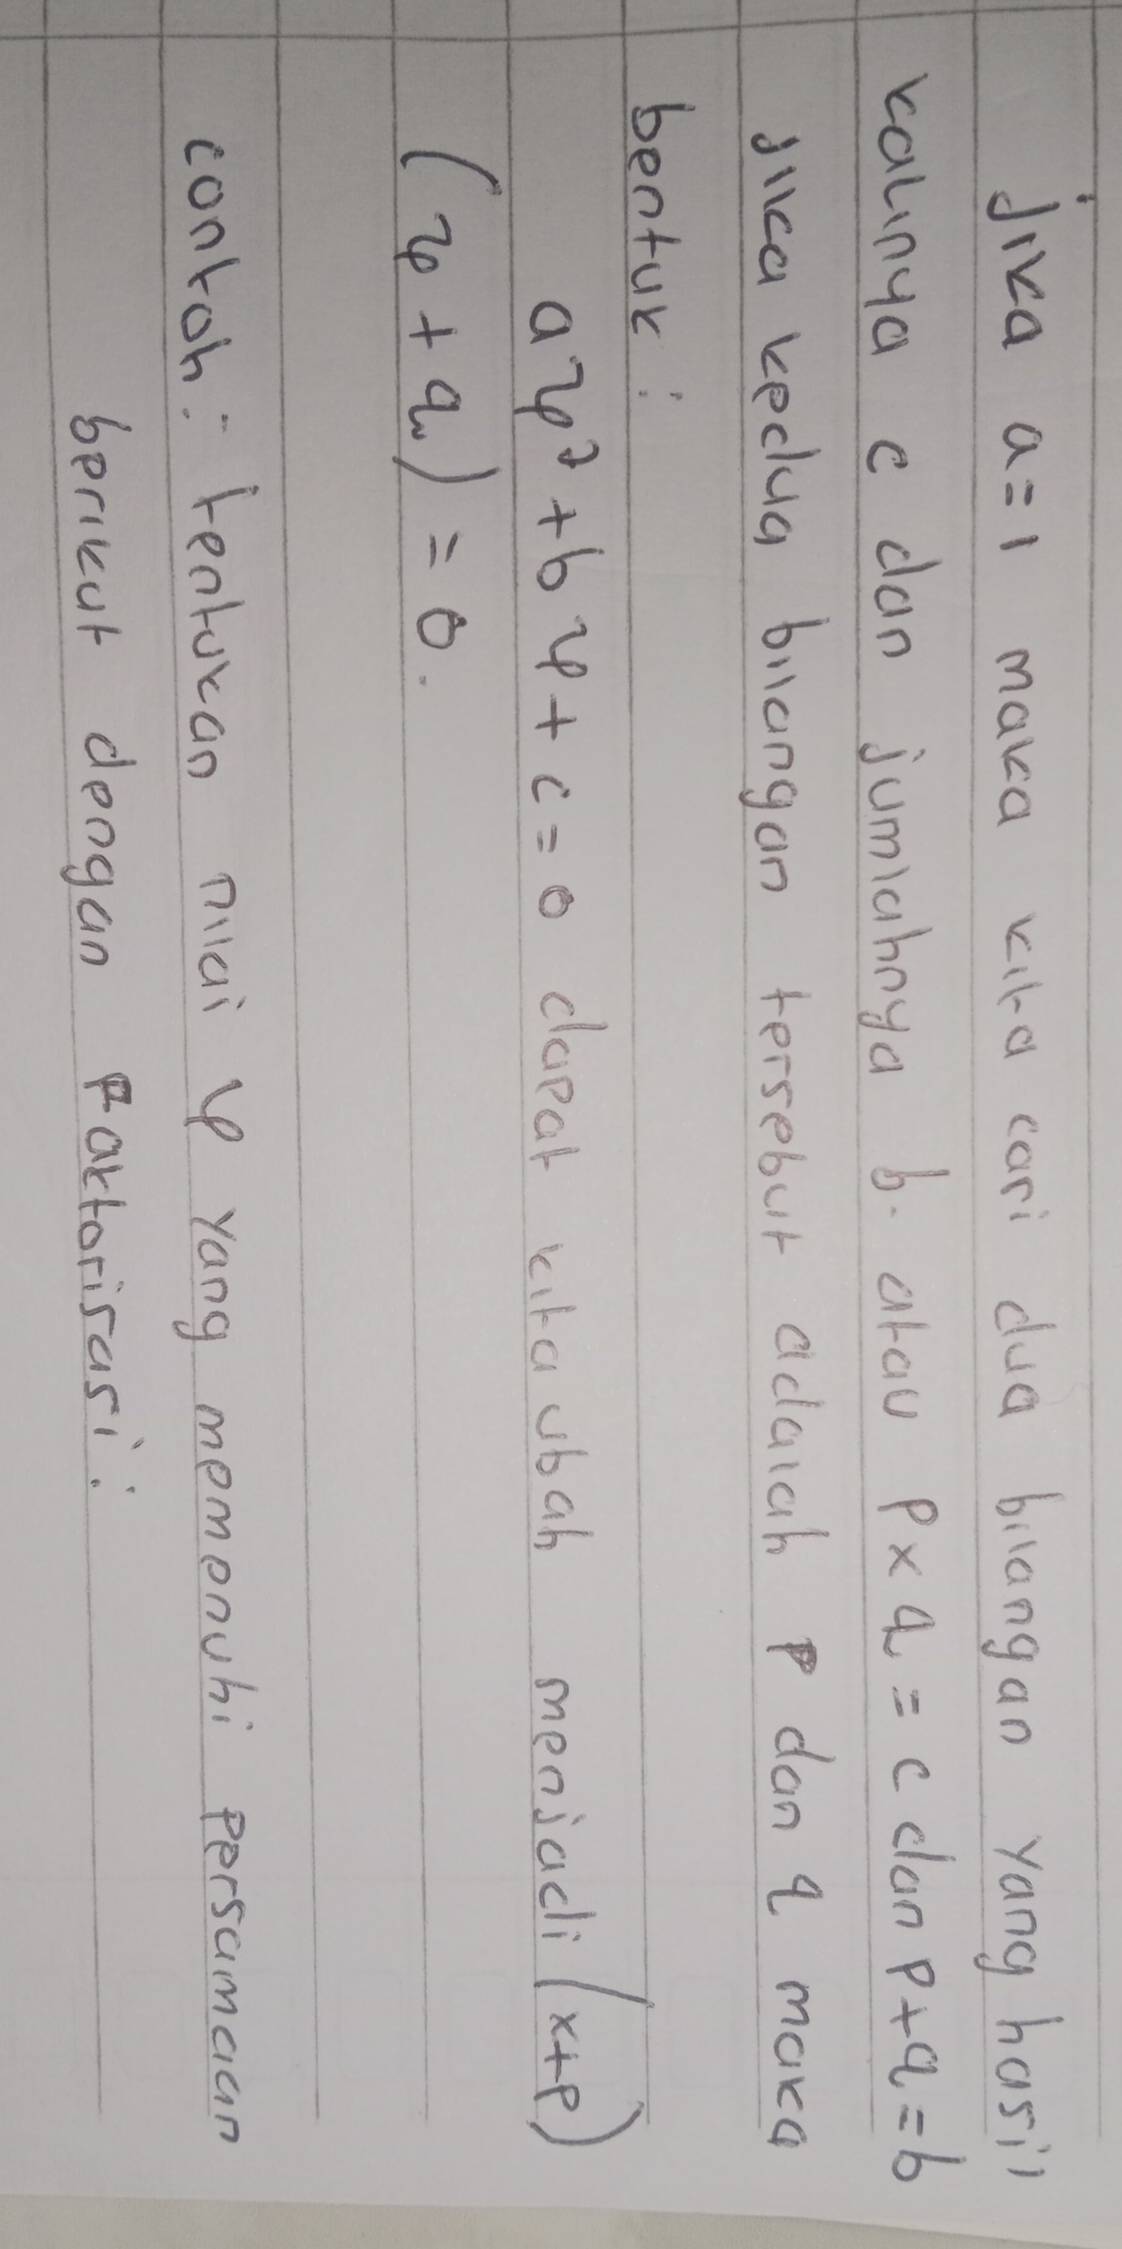 jika a=1 maka kita cari dua bilangan yang hasil
kalinya c dan jumlahnya b. atau p×q=c dan p+q=b
jika kedua bilangan tersebut adalah p dan q maka
bentuk:
ax²+bx+c=0 dapat kita ubah menjadi (x+p)
(x+q)=0.
contoh: tentukan nilai x yang memenuhi persamaan
berikut dengan Faktorisasi: